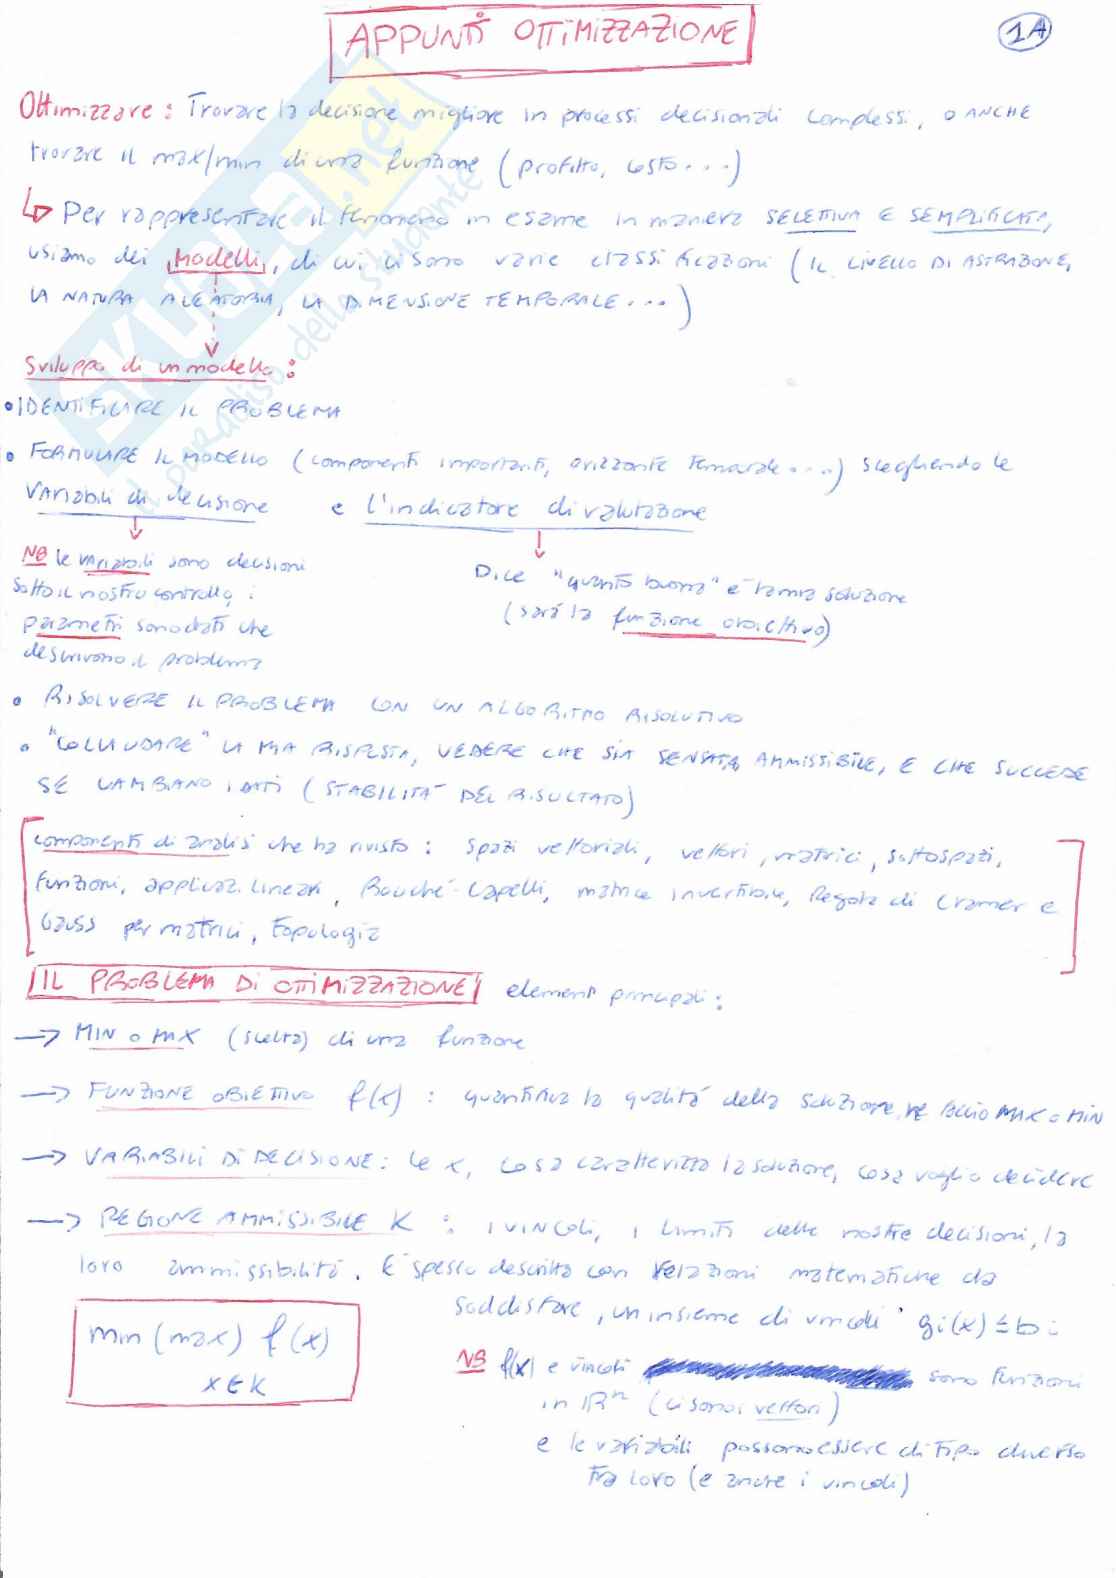 APPUNTI OTTIMIZZAZIONE
1A
Ottimizzare: Trovare la decisione migliore in processi decisionali complessi, O ANCHE
trovare il max/min di una funzione (profitto, costo...)
Per rappresentare il fenomeno in esame in maniera SELETTIVA E SEMPLIFICATA,
usiamo dei Modelli, di cui ci sono varie classificazioni (IL LIVELLO DI ASTRAZIONE,
LA NATURA ALEATORIA, LA DIMENSIONE TEMPORALE...)
Sviluppo di un modello:
• IDENTIFICARE IL PROBLEMA
• FORMULARE IL MODELLO (componenti importanti, orizzonte temporale....) scegliendo le
Variabili di decisione e l'indicatore di valutazione
NB le variabili sono decisioni
sotto il nostro controllo, i
parametri sono dati che
descrivono il problema
Dice "quanto buona" è la mia soluzione
(sarà la funzione obiettivo)
• RISOLVERE IL PROBLEMA CON UN ALGORITMO RISOLUTIVO
• "COLLAUDARE" LA MIA RISPOSTA, VEDERE CHE SIA SENSATA, AMMISSIBILE, E CHE SUCCEDE
SE CAMBIANO I DATI (STABILITA' DEL RISULTATO)
componenti di analisi che ha rivisto: spazi vettoriali, vettori, matrici, sottospazi,
funzioni, applicaz. lineari, Rouché-Capelli, matrice invertibile, Regola di Cramer e
Gauss per matrici, topologia
IL PROBLEMA DI OTTIMIZZAZIONE elementi principali:
→ MIN o MAX (scelta) di una funzione
→ FUNZIONE OBIETTIVO f(x) : quantifica la qualità della soluzione, NE FACCIO MAX o MIN
→ VARIABILI DI DECISIONE: le x, cosa caratterizza la soluzione, cosa voglio decidere
→ REGIONE AMMISSIBILE K : i vincoli, i limiti delle nostre decisioni, la
loro ammissibilità. E' spesso descritta con relazioni matematiche da
soddisfare, un insieme di vincoli gi(x) ≤ bi
min (max) f(x)
x ∈ K
NB f(x) e vincoli sono funzioni
in ℝⁿ (ci sono i vettori)
e le variabili possono essere di tipo diverso
tra loro (e anche i vincoli)
SKUOLA.net
il paradiso dello studente